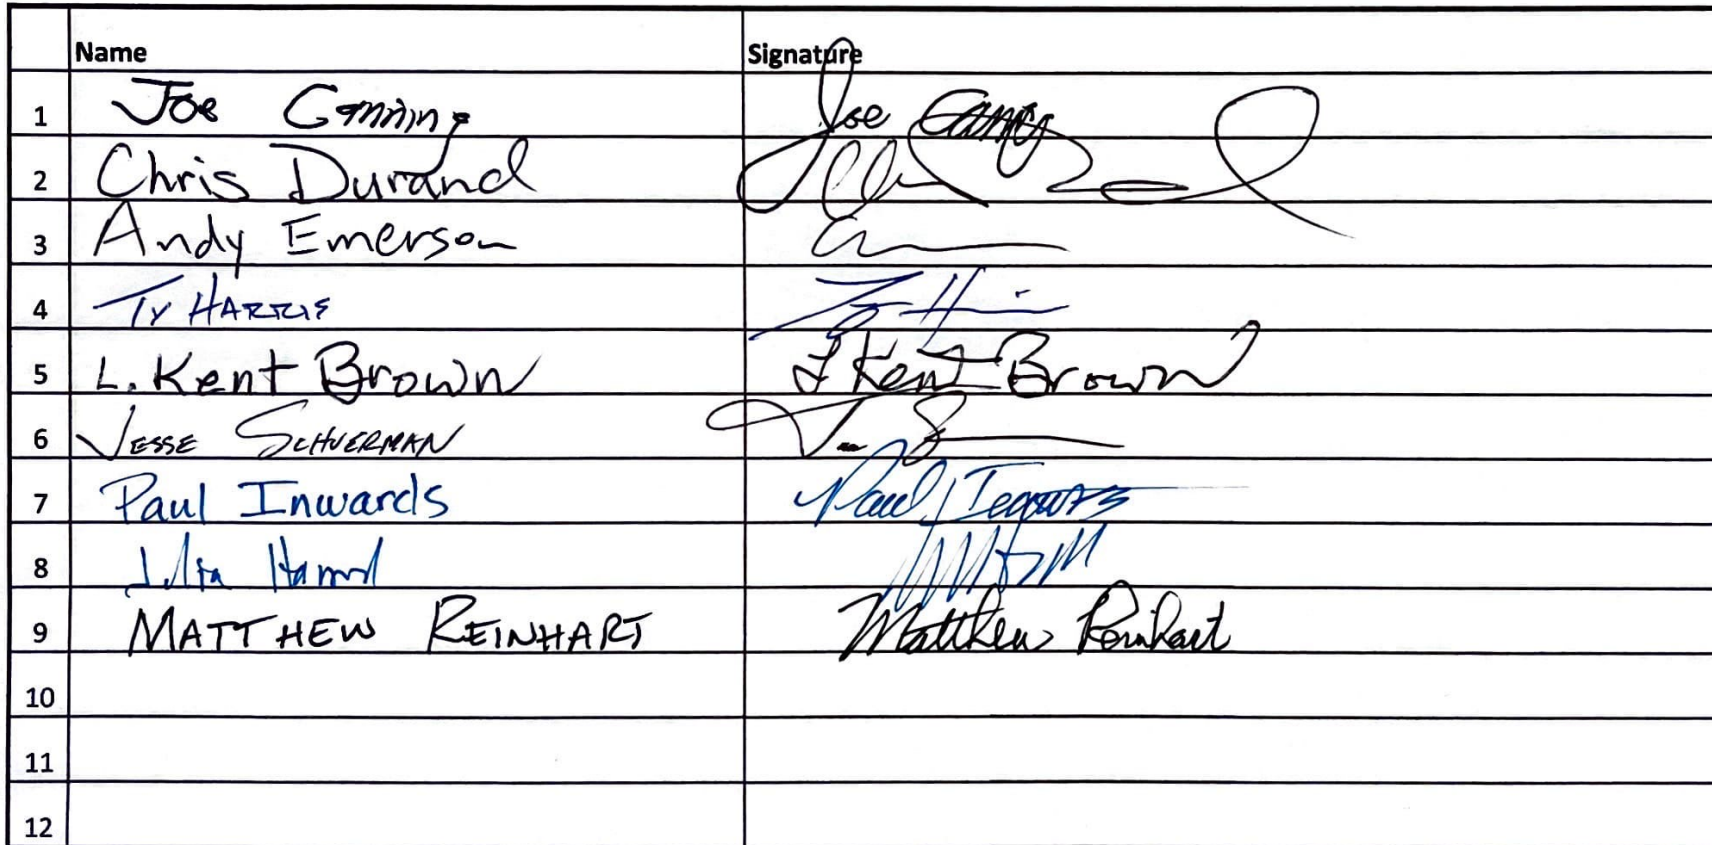 Name Signature
1 Joe Canning Joe Canning
2 Chris Durand
3 Andy Emerson
4 TY HARRIS Ty H
5 L. Kent Brown L Kent Brown
6 JESSE SCHUERMAN
7 Paul Inwards Paul Inwards
8 Julia
9 MATTHEW REINHART Matthew Reinhart
10
11
12